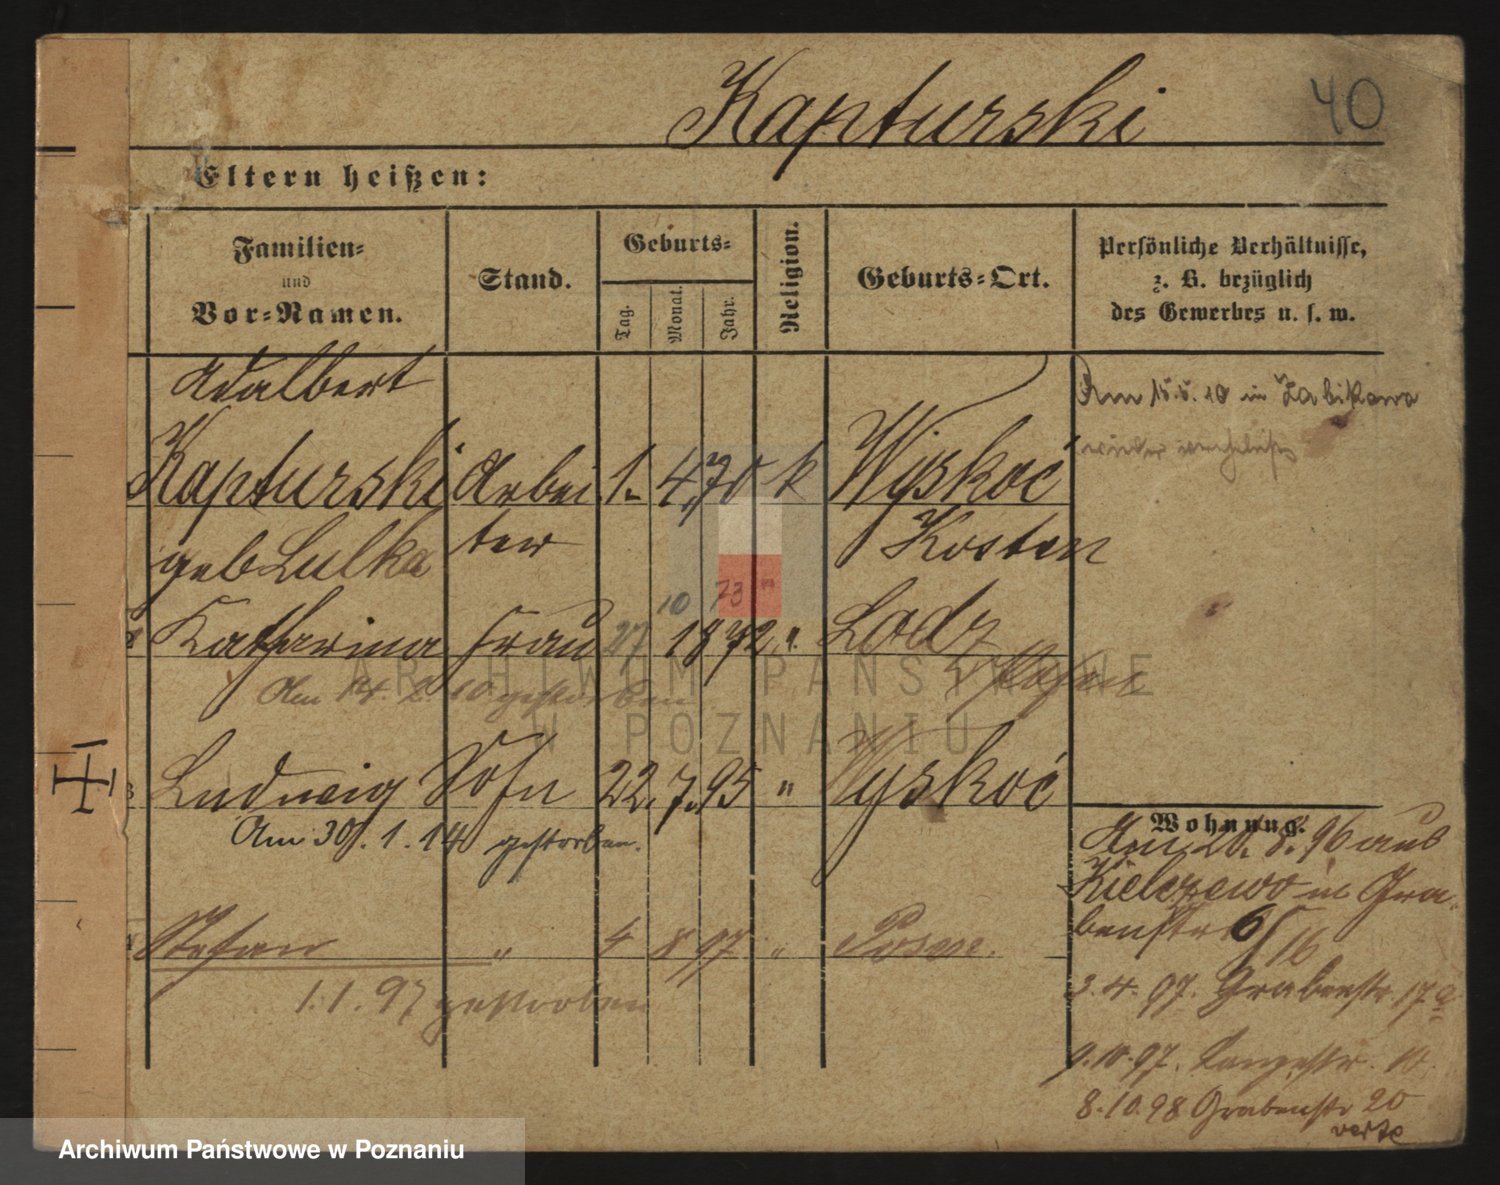 Kapturski 40
Eltern heißen:
Familien- und Vor-Namen.
Stand.
Geburts-
Tag.
Monat.
Jahr.
Religion.
Geburts-Ort.
Persönliche Verhältnisse,
z. B. bezüglich
des Gewerbes u. s. w.
Adalbert
Kapturski Arbei 1. 4. 70 k Wyskoć
geb Lulka ter Kosten
10 73
Katharina Frau 27 1872 " Lodz
Am 14. 2. 10 gestorben
3 Ludwig Sohn 22. 7. 95 " Wyskoć
Am 30. 1. 14 gestorben.
Stefan " 4 8 97 " Posen.
1. 1. 97 gestorben
Am 15. 5. 10 in Zabikowo
wieder
Wohnung.
Am 20. 8. 96 aus
Kielczewo in Gra-
benstr 6/16
3. 4. 97. Grabenstr. 17a
9. 10. 97. Langestr. 10.
8. 10. 98 Grabenstr 20
verte
ARCHIWUM PAŃSTWOWE
W POZNANIU
Archiwum Państwowe w Poznaniu